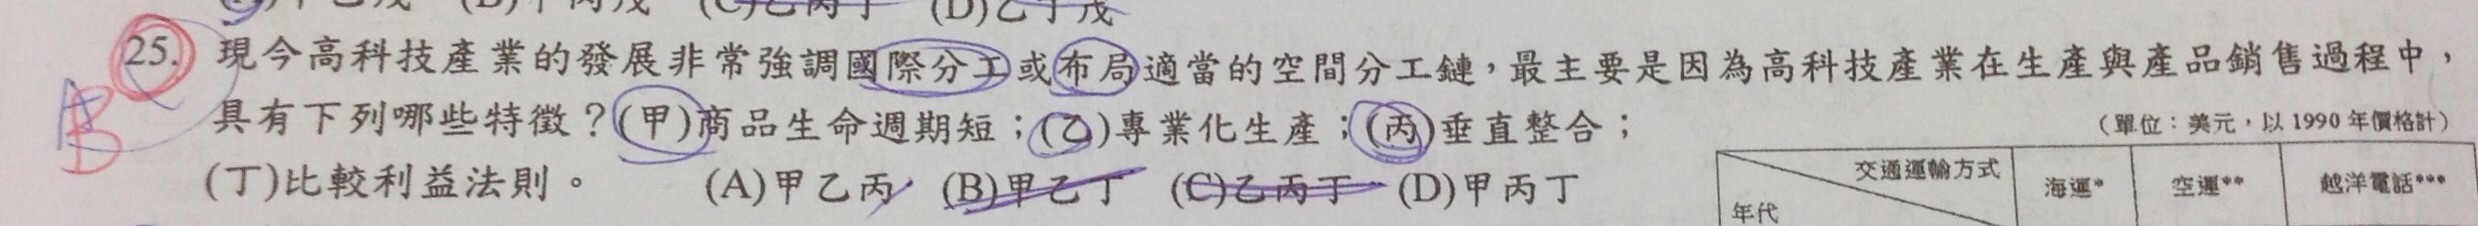 (D)乙丁戊
25. 現今高科技產業的發展非常強調國際分工或布局適當的空間分工鏈，最主要是因為高科技產業在生產與產品銷售過程中，
B
具有下列哪些特徵？(甲)商品生命週期短；(乙)專業化生產；(丙)垂直整合；
（單位：美元，以1990年價格計）
(丁)比較利益法則。 (A)甲乙丙 (B)甲乙丁 (C)乙丙丁 (D)甲丙丁
交通運輸方式 海運* 空運** 越洋電話***
年代